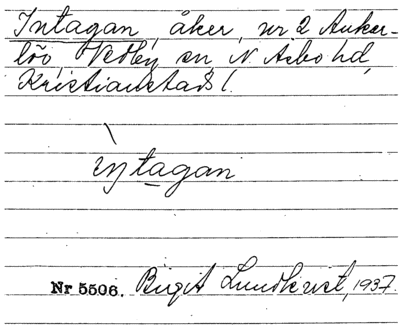 Intagan, åker, nr 2 Ankar-
löv, Vedby sn, N Åsbo hd,
Kristianstads l.
ìntagan
Nr 5506. Birgit Lundkvist, 1937.